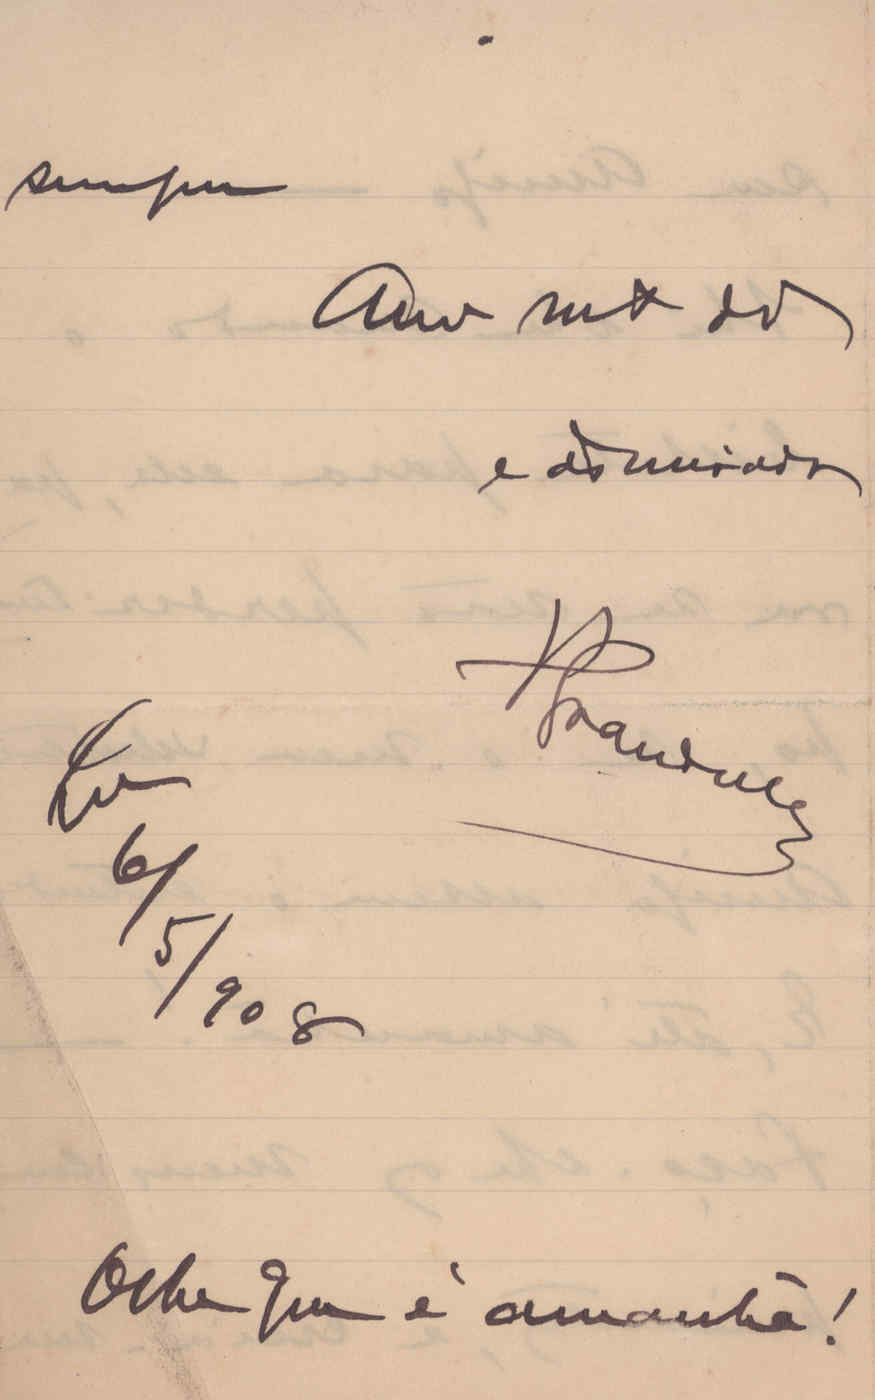 sempre
Amo mto ddo
e admirador
6/5/908
Olhe que é amanhã!